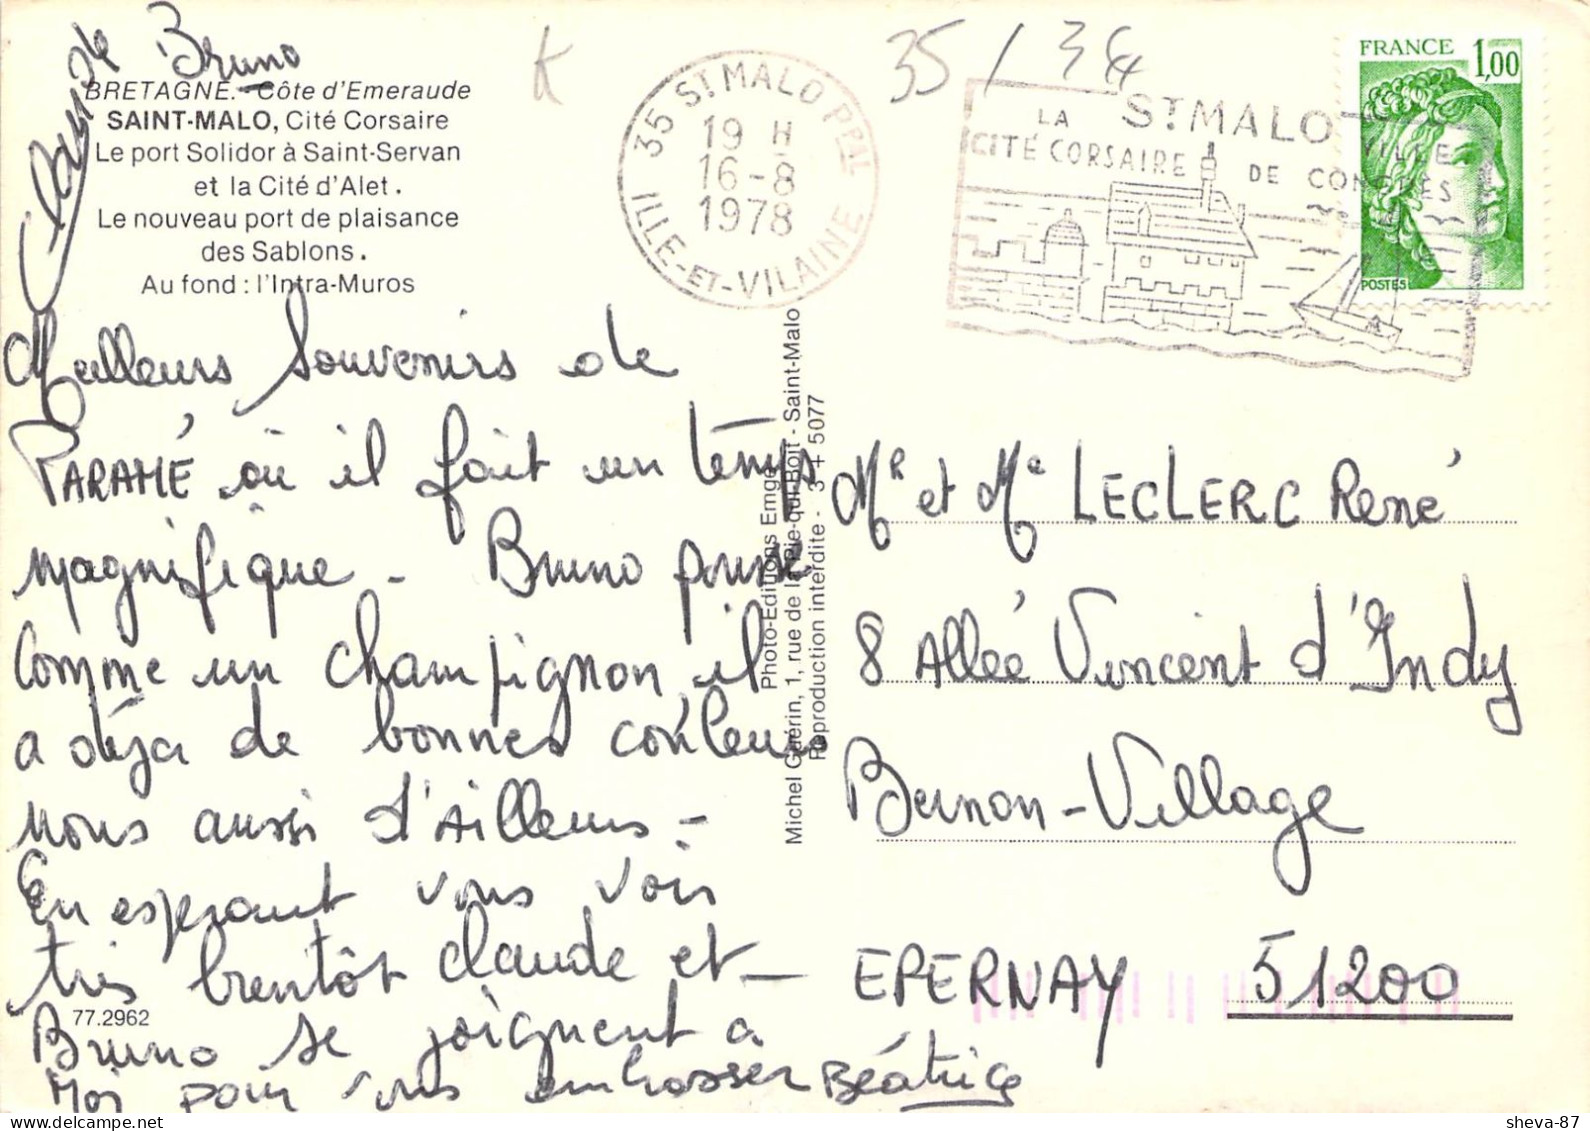 Claude Bruno
BRETAGNE. - Côte d'Emeraude
SAINT-MALO, Cité Corsaire
Le port Solidor à Saint-Servan
et la Cité d'Alet.
Le nouveau port de plaisance
des Sablons.
Au fond : l'Intra-Muros
K
35 / 34
35 ST MALO PPAL
19 H
16-8
1978
ILLE-ET-VILAINE
ST MALO
LA CITÉ CORSAIRE
VILLE DE CONGRÈS
FRANCE 1,00
POSTES
Meilleurs Souvenirs de
PARAMÉ où il fait un temps
magnifique - Bruno pousse
comme un champignon il
a déja de bonnes couleurs
nous aussi d'Ailleurs -
En esperant vous voir
très bientôt Claude et
Bruno se joignent a
Moi pour vous embrasser Béatrice
77.2962
Photo-Editions Emge
Michel Guérin, 1, rue de la Pie-qui-Boit - Saint-Malo
Reproduction interdite - 3 + 5077
Mr et Me LECLERC René
8 Allée Vincent d'Indy
Bernon-Village
EPERNAY 51200
sheva-87